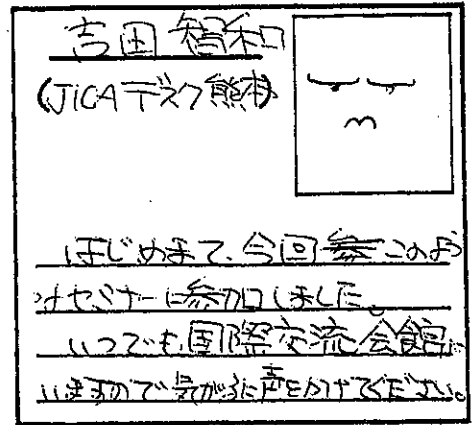 吉田 智和
(JICAデスク熊本)
はじめまて、今回参このよう
なセミナーに参加しました。
いつでも国際交流会館に
いますので気がるに声をかけてください。